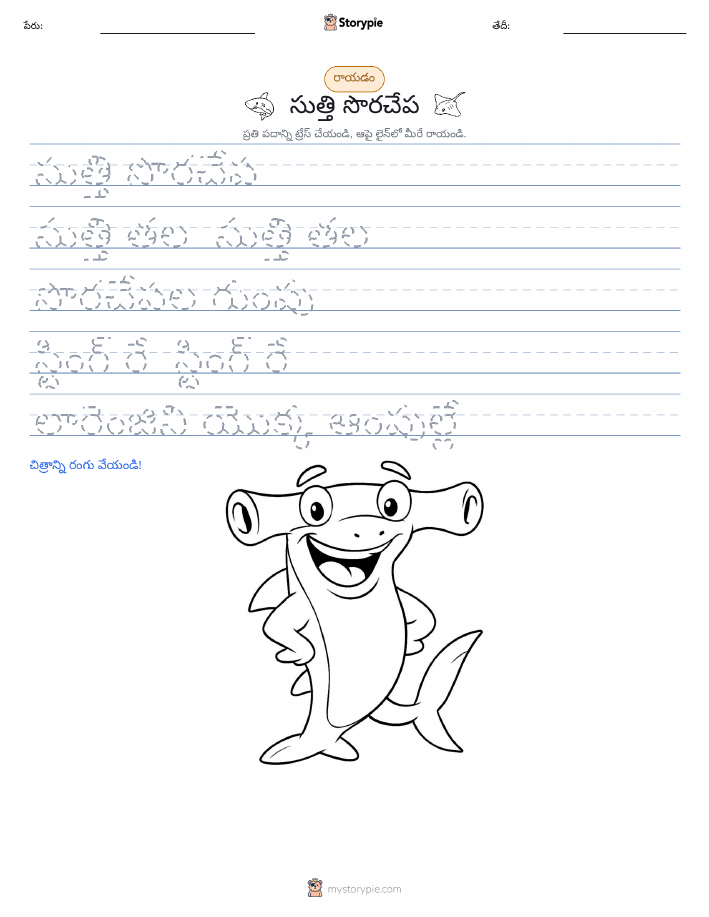 పేరు:
Storypie
తేదీ:
రాయడం
సుత్తి సొరచేప
ప్రతి పదాన్ని ట్రేస్ చేయండి, ఆపై లైన్‌లో మీరే రాయండి.
సుత్తి సొరచేప
సుత్తి తల సుత్తి తల
సొరచేపల గుంపు
స్టింగ్ రే స్టింగ్ రే
లారెంజిని యొక్క ఆంపుల్లే
చిత్రాన్ని రంగు వేయండి!
mystorypie.com